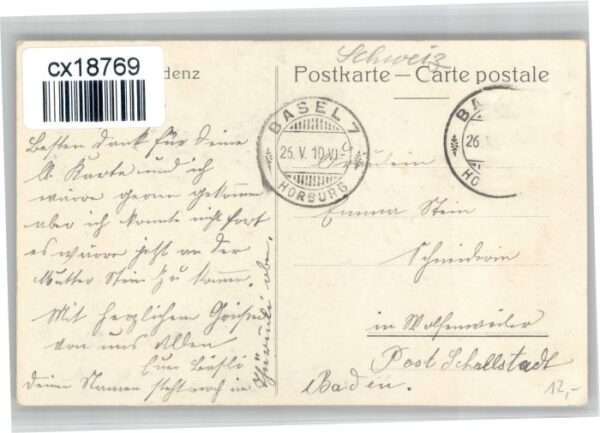 cx18769
denz
Schweiz
Postkarte — Carte postale
BASEL 7
25. V. 10.VI-9
HORBURG
BA
26
HO
Besten Dank für deine
lb. Karte und ich
wäre gern gekommen
aber ich konnte nicht fort
es wäre jetzt an der
Mutter Stein zu kommen.
Mit herzlichen Grüßen
von uns Allen
deine Namen steht noch in
Fräulein
Emma Stein
Schneiderin
in Wolfenweiler
Post Schallstadt
Baden.
12,-